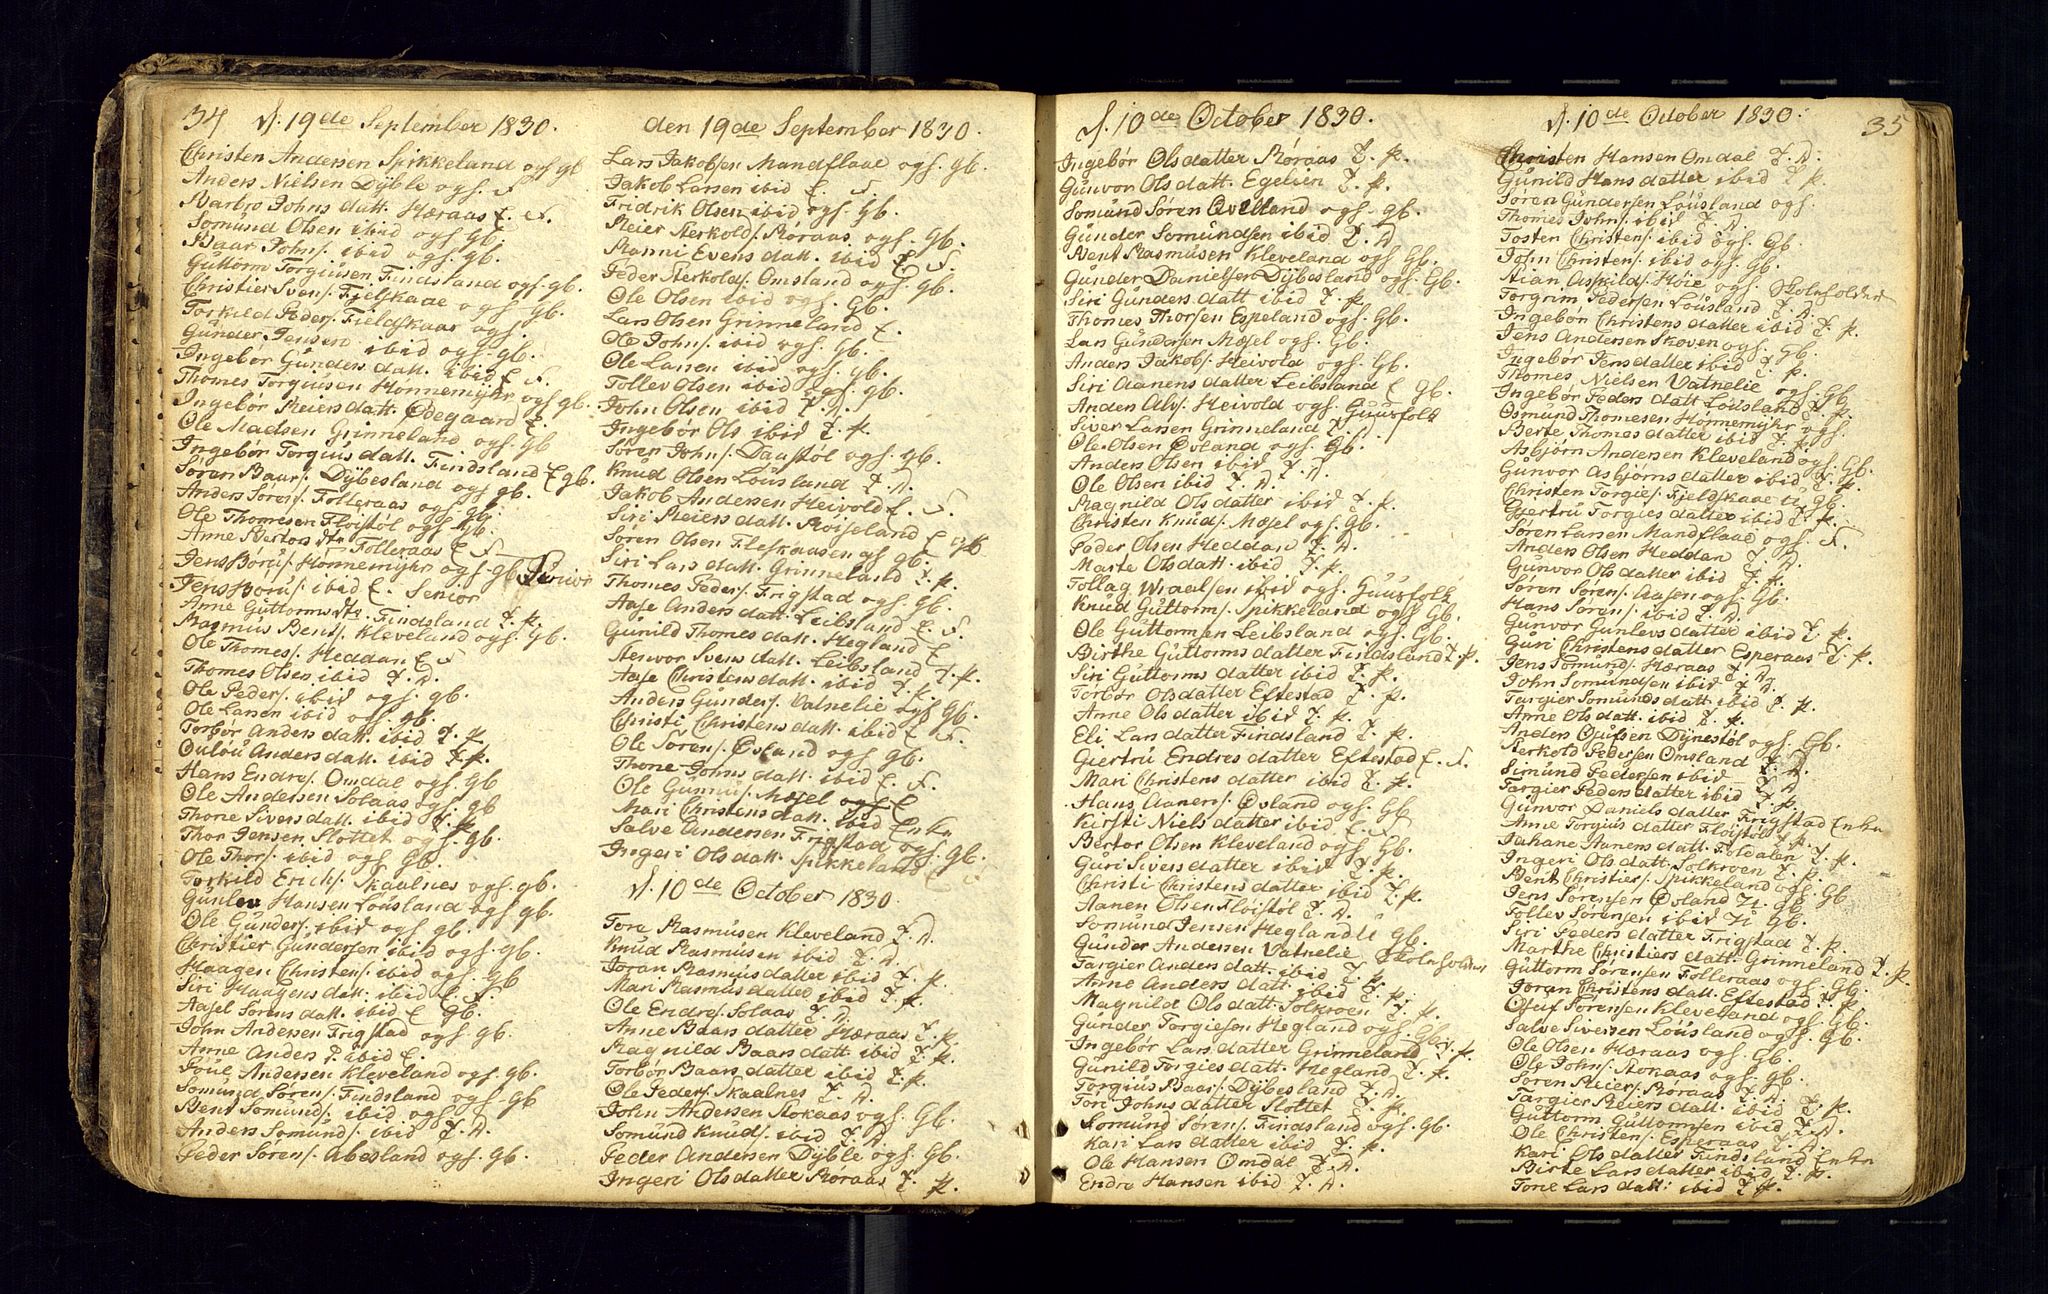 34 d. 19de September 1830.
Christen Andersen Spikkeland ogh gb
Anders Nielsen Dÿble ogh. F
Barbro Johns datt. Hæraas E. F.
Somund Olsen ibid ogh gb
Baar Johns. ibid ogh. gb.
Guttorm Torgiusen Findsland ogh. gb.
Christier Svens. Fjelskaae ogh gb.
Torkild Peders. Fieldskaar ogh.
Gunder Jensen ibid ogh. gb.
Ingebør Gunders datt. ibid E F.
Thomes Torgiusen Hønnemÿhr ogh gb.
Ingebør Reiers datt. Ødegaard E.
Ole Madsen Grinneland ogh. gb
Ingebør Torgius datt. Findsland E gb.
Søren Baars. Dÿbesland ogh gb.
Anders Sørens. Folleraas ogh. gb.
Ole Thomesen Fløistøl ogh. gb.
Anne Bertors dtr Folleraas E F
Jens Børus. Hønnemÿhr ogh. gb. Junior
Jens Børus. ibid E. Senior
Anne Guttorms dtr. Findsland T. P.
Rasmus Bents. Kleveland ogh. Gb.
Ole Thomes. Heddan E F
Thomes Olsen ibid T. D.
Ole Peders. ibid ogh. gb.
Ole Larsen ibid ogh. gb.
Torbør Anders datt. ibid T. P.
Oulou Anders datt. ibid T. P.
Hans Endres. Omdal ogh. gb
Ole Andersen Solaas ogh gb
Thone Sivers datt. ibid T. P.
Thor Jensen Slottet ogh. gb.
Ole Thors. ibid ogh. Gb.
Torkild Erichs. Skaalnes ogh. gb.
Gunlev Hansen Lousland ogh gb.
Ole Gunders. ibid ogh. gb
Christier Gundersen ibid ogh. gb.
Haagen Christens. ibid ogh. gb
Siri Haagens datt. ibid E. F.
Aasel Torens datt. ibid E gb.
John Andersen Frigstad ogh gb.
Anne Anders D. ibid E.
Poul Andersen Kleveland ogh. gb.
Somund Sørens. Findsland ogh gb
Bent Somunds. ibid ogh. F
Anders Somunds. ibid T. D.
Peder Sørens. Abesland ogh. gb.
den 19de September 1830.
Lars Jakobsen Mandflaae ogh. gb.
Jakob Larsen ibid E. F.
Fridrik Olsen ibid ogh. gb.
Reier Sterkolds. Røraas ogh. gb.
Ranni Evens datt. ibid E F.
Peder Sterkolds. Omsland ogh. gb.
Ole Olsen ibid ogh. Gb.
Lars Olsen Grinneland E.
Ole Johns. ibid ogh. Gb.
Ole Larsen ibid ogh. gb.
Tollev Olsen ibid ogh. gb.
John Olsen ibid T. D.
Ingebør Ols ibid T. P.
Søren Johns. Daastøl ogh. gb.
Knud Olsen Lousland T. D.
Jakob Andersen Heivold E. F.
Siri Reiers datt. Roiseland E gb
Søren Olsen Fleskaasen ogh gb.
Siri Lars datt. Grinneland T. P.
Thomes Peders. Frigstad ogh. Gb.
Aase Anders datt. Leibsland E. F.
Gunild Thomes datt. Hegland E
Stenvor Svens datt. Leibsland T. P.
Aase Christens datt. ibid T. P.
Anders Gunders. Vatnelie ogh Gb.
Christi Christens datt. ibid E F.
Ole Sørens. Øvland ogh gb.
Thone Johns datt. ibid E. F.
Ole Gunnus. Møsel ogh E
Mari Christens datt. ibid Enke
Salve Andersen Frigstad ogh. Gb.
Ingeri Ols datt. Spikkeland E F
d. 10de October 1830.
Tore Rasmusen Kleveland T. D.
Knud Rasmusen ibid T. D.
Joran Rasmus datter ibid T. P.
Mari Rasmus datter ibid T. P.
Ole Endres. Solaas T. D.
Anne Baars datter Hæraas T. P.
Ragnild Baars datt. ibid T. P.
Torbør Baars datter ibid T. P.
Ole Peders. Skaalnes T. D.
John Andersen Stokaas ogh. Gb.
Somund Knuds. ibid T. D
Peder Andersen Dÿble ogh. Gb.
Ingeri Ols datter Røraas T. P.
d. 10de October 1830.
Ingebør Olsdatter Røraas T. P.
Gunvor Ols datt. Egelien T. P.
Somund Søren Øvelland ogh. gb.
Gunder Somundsen ibid T. D
Bent Rasmusen Kleveland ogh Gb.
Gunder Danielsen Dÿbesland ogh. Gb.
Siri Gunders datt ibid T. P.
Thomes Thorsen Espeland ogh. Gb.
Lars Gundersen Mæsel ogh. Gb.
Anders Jakobs. Heivold ogh. Gb.
Siri Aanens datter Leibsland E gb.
Anders Alvs. Heivold ogh. Guusfolk
Siver Larsen Grinneland T. D.
Ole Olsen Øvland ogh. Gb.
Anders Olsen ibid T. D.
Ole Olsen ibid T. D.
Ragnild Ols datter ibid T. P.
Christen Knuds. Mosel ogh. Gb.
Peder Olsen Heddan T. D.
Marte Olsdatt. ibid T. P.
Tollag Wraalsen ibid ogh. Guusfolk
Knud Guttorms. Spikkeland ogh Gb.
Ole Guttormsen Leibsland ogh. Gb.
Birthe Guttorms datter Findsland T. P.
Siri Guttorms datter ibid T. P.
Torbør Olsdatter Eftestad T. P.
Anne Ols datter ibid T. P.
Eli Lars datter Findsland T. P.
Giertru Endres datter Eftestad E. F.
Mari Christens datter ibid T. P.
Hans Aanens. Øvland ogh. Gb
Kirsti Niels datter ibid E. F.
Bertor Olsen Kleveland ogh. Gb.
Guri Sivers datter ibid T. P.
Christi Christens datter ibid T. P.
Aanen Olsen Fløistøl T. D.
Somund Jensen Hegland U gb.
Gunder Andersen Vatnelie Skoleholder
Targier Anders datt. ibid T. P.
Anne Anders datt. ibid T. P.
Magnilde Ols datt. Solkroen T. P.
Gunder Torgiesen Hegland ogh. Gb.
Ingebør Lars datter Grinneland T. P.
Gunild Torgies datt. Hegland T. P.
Torgius Baars. Dÿbesland T. D.
Tøri Johns datter Slottet T. P.
Somund Sørens. Findsland ogh. gb.
Kari Lars datter ibid T. P.
Ole Hansen Omdal T. D.
Endre Hansen ibid T. D.
d. 10de October 1830. 35
Christen Hansen Omdal T. D.
Gunild Hans datter ibid T P.
Søren Gundersen Lousland ogh.
Thomes Johns. ibid T. D.
Tosten Christens. ibid ogh. Gb.
John Christens. ibid ogh. Gb.
Stian Askilds. Høie ogh. Skoleholder
Torgrim Pedersen Lousland T. D.
Ingebør Christens datter ibid T. P.
Jens Andersen Skoven ogh. Gb.
Ingebør Jens datter ibid T. P.
Thomes Nielsen Vatnelie ogh. Gb
Ingebør Peders datt Lousland T. P.
Osmund Thomesen Hønnemÿhr ogh.
Berte Thomes datter ibid T. P.
Asbjørn Andersen Kleveland ogh. Gb.
Gunvor Asbjørns datter ibid T. P.
Christen Torgies. Fjeldskaae U Gb.
Gjertru Torgies datter ibid T. P.
Søren Larsen Mandflaae ogh. F.
Anders Olsen Heddan T. D.
Gunvor Ols datter ibid T. P.
Søren Sørens. Aasen ogh. Gb.
Hans Sørens. ibid T. D.
Gunvor Gunlevs datter ibid T. P.
Guri Christens datter Esperaas T. P.
Jens Somunds. Hæraas T. D
John Somundsen ibid T. D.
Targier Somunds datt ibid T. P.
Anne Ols datt. ibid T. P.
Anders Ojufsen Dÿnestøl ogh. Gb.
Sterkold Pedersen Omsland T. D.
Simund Pedersen ibid T. D.
Targier Peders datter ibid T. P.
Gunvor Daniels datter Frigstad Enke
Anne Torgius datter Fløistøl T. P.
Jahane Aanens datt. Foldalen T. P.
Ingeri Ols datt. Solkroen T. P.
Bent Christiers. Spikkeland ogh. Gb
Jens Sørensen Øvland U. Gb
Tollev Sørensen ibid U Gb.
Siri Peders datter Frigstad T. P.
Marthe Christiers datt. Grinneland T. P.
Guttorm Sørensen Folleraas ogh. Gb.
Joran Christens datt. Eftestad T. P.
Ojuf Torensen Kleveland ogh. Gb.
Salve Siversen Lousland ogh. Gb.
Ole Olsen Hæraas ogh. Gb.
Ole Johns. Stokaas ogh. Gb.
Søren Reiers. Røraas T. D.
Targier Reiers datt. ibid T. P.
Guttorm Guttormsen ibid T. D.
Ole Christens. Esperaas T. D
Kari Ols datter Findsland Enke
Birte Lars datter ibid T. P.
Tone Lars datt. ibid T. P.